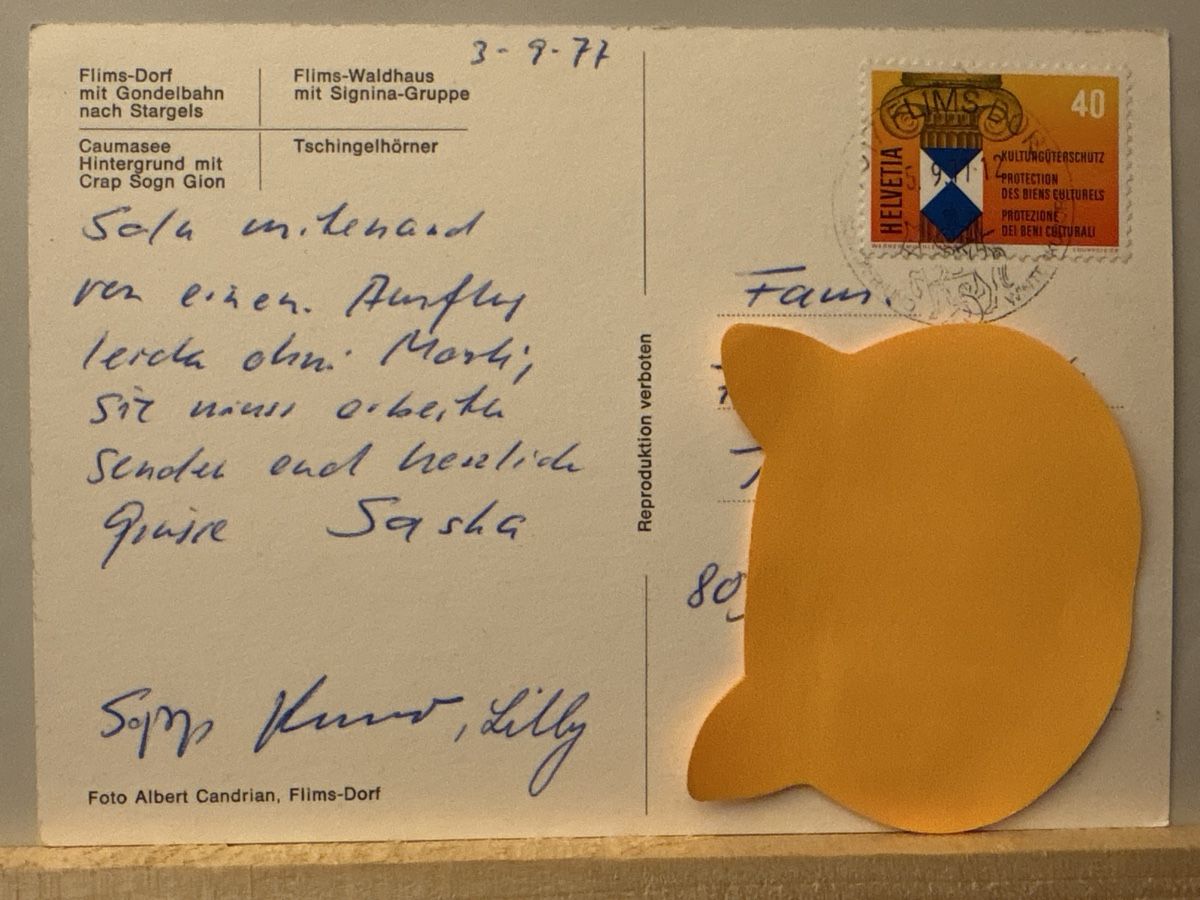 3-9-77
Flims-Dorf
mit Gondelbahn
nach Stargels
Flims-Waldhaus
mit Signina-Gruppe
Caumasee
Hintergrund mit
Crap Sogn Gion
Tschingelhörner
Salü mitenand
von einem Ausflug
leider ohni
sie muss arbeiten
senden eud herzlich
Grüsse Sasha
Sepp Kuno, Lilly
Foto Albert Candrian, Flims-Dorf
Reproduktion verboten
HELVETIA
40
KULTURGÜTERSCHUTZ
PROTECTION
DES BIENS CULTURELS
PROTEZIONE
DEI BENI CULTURALI
FLIMS DORF
5.9.77-12
Fam.
80